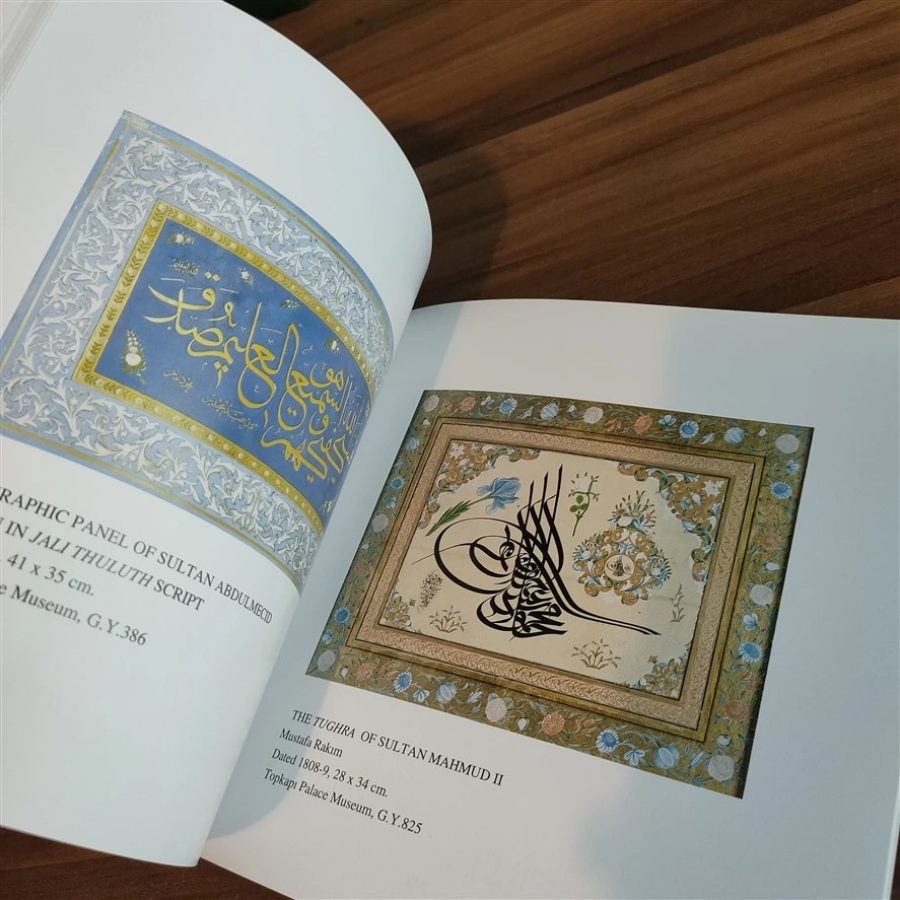 وهو السميع العليم
RAPHIC PANEL OF SULTAN ABDULMECID
IN JALI THULUTH SCRIPT
41 x 35 cm.
Museum, G.Y.386
THE TUGHRA OF SULTAN MAHMUD II
Mustafa Rakım
Dated 1808-9, 28 x 34 cm.
Topkapı Palace Museum, G.Y.825